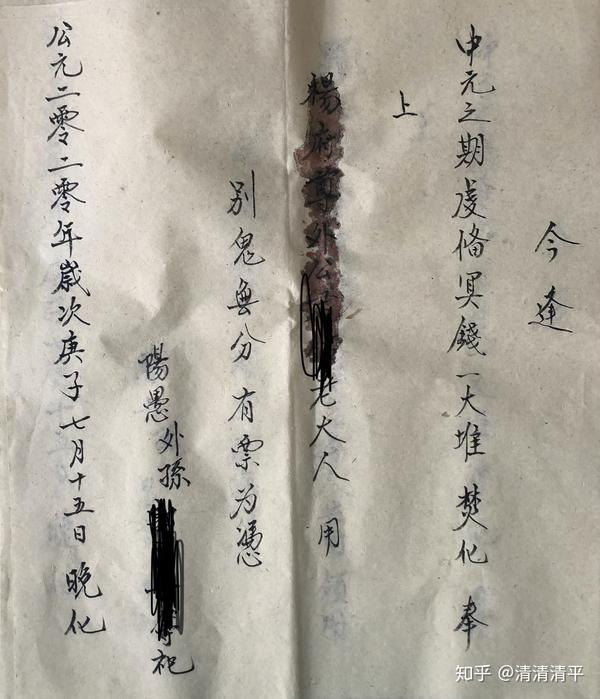 今逢
中元之期虔俻冥錢一大堆焚化奉
上
楊府尊外公老大人用
別鬼無分有票为憑
陽愚外孫祀
公元二零二零年嵗次庚子七月十五日晚化
知乎 @清清清平